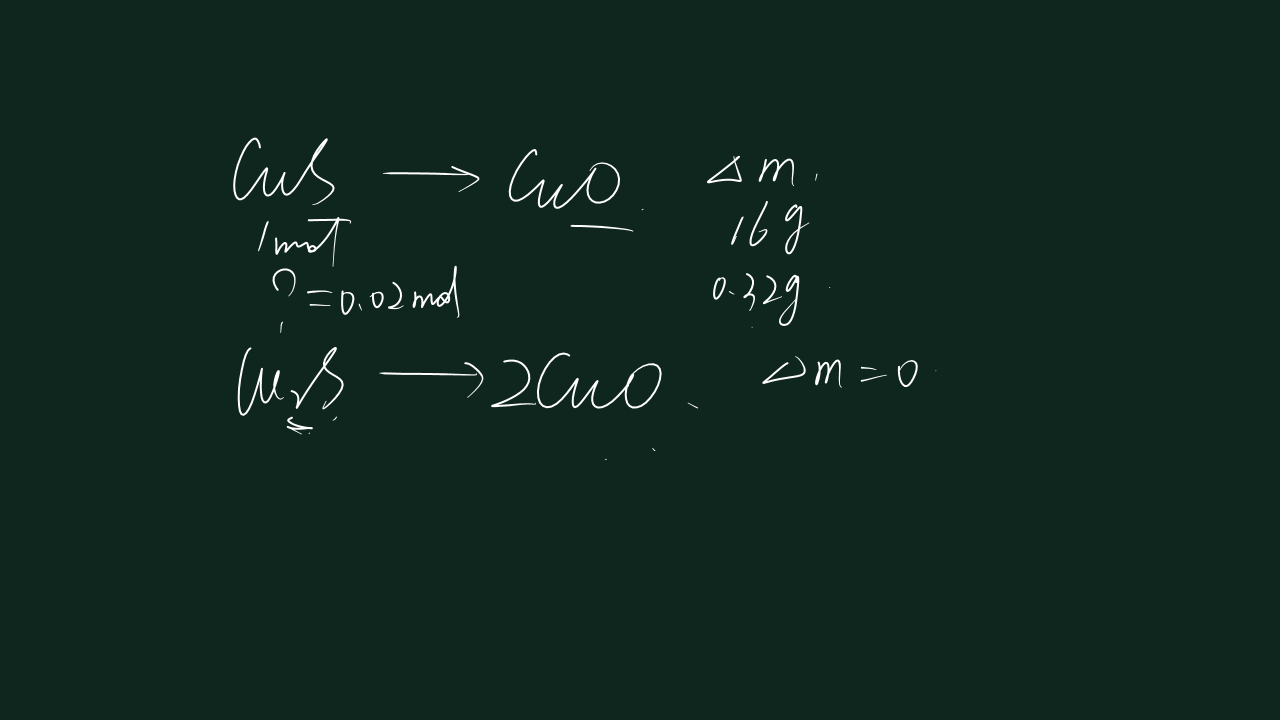 CuS → CuO Δm
1mol 16g
? = 0.02mol 0.32g
Cu₂S → 2CuO Δm = 0